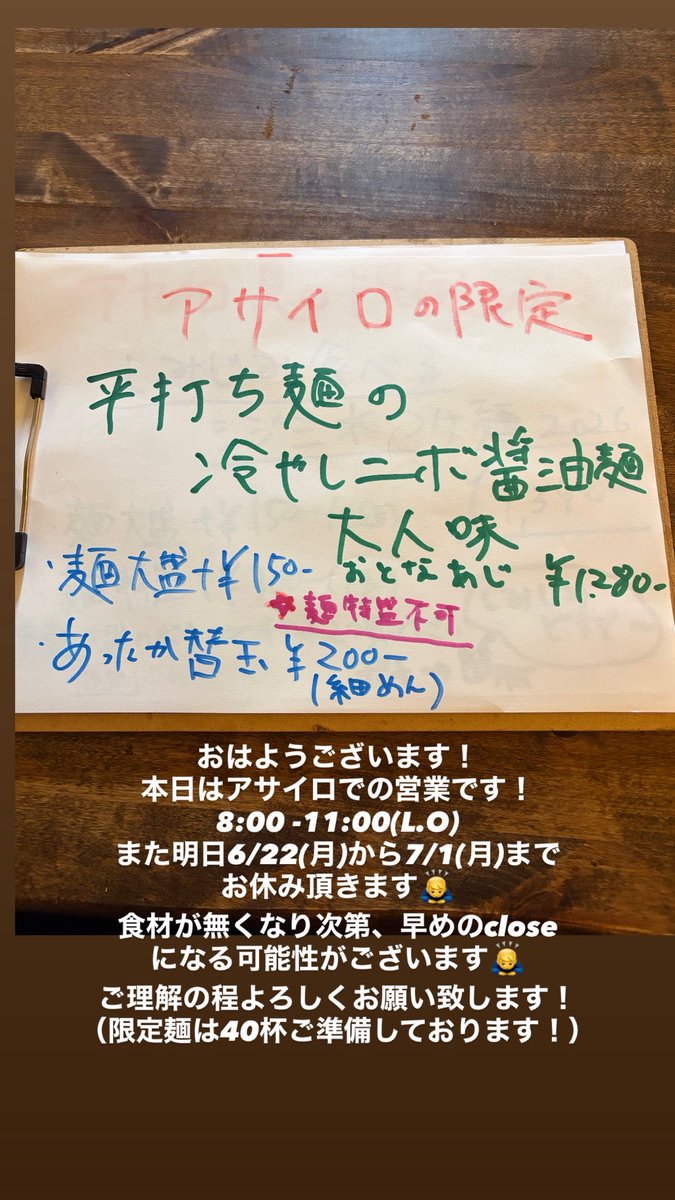 アサイロの限定
平打ち麺の
冷やしニボ醤油麺
大人味
おとなあじ
¥1,280-
・麺大盛+¥150-
*麺特盛不可
・あったか替玉 ¥200-
(細めん)
おはようございます！
本日はアサイロでの営業です！
8:00 -11:00(L.O)
また明日6/22(月)から7/1(月)まで
お休み頂きます🙇
食材が無くなり次第、早めのclose
になる可能性がございます🙇
ご理解の程よろしくお願い致します！
（限定麺は40杯ご準備しております！）